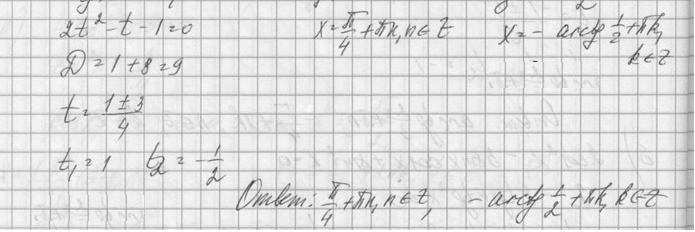 2t² - t - 1 = 0
D = 1 + 8 = 9
t = (1 ± 3)/4
t₁ = 1 t₂ = -1/2
x = π/4 + πn, n ∈ Z
x = - arctg 1/2 + πk,
k ∈ Z
Ответ: π/4 + πn, n ∈ Z, - arctg 1/2 + πk, k ∈ Z